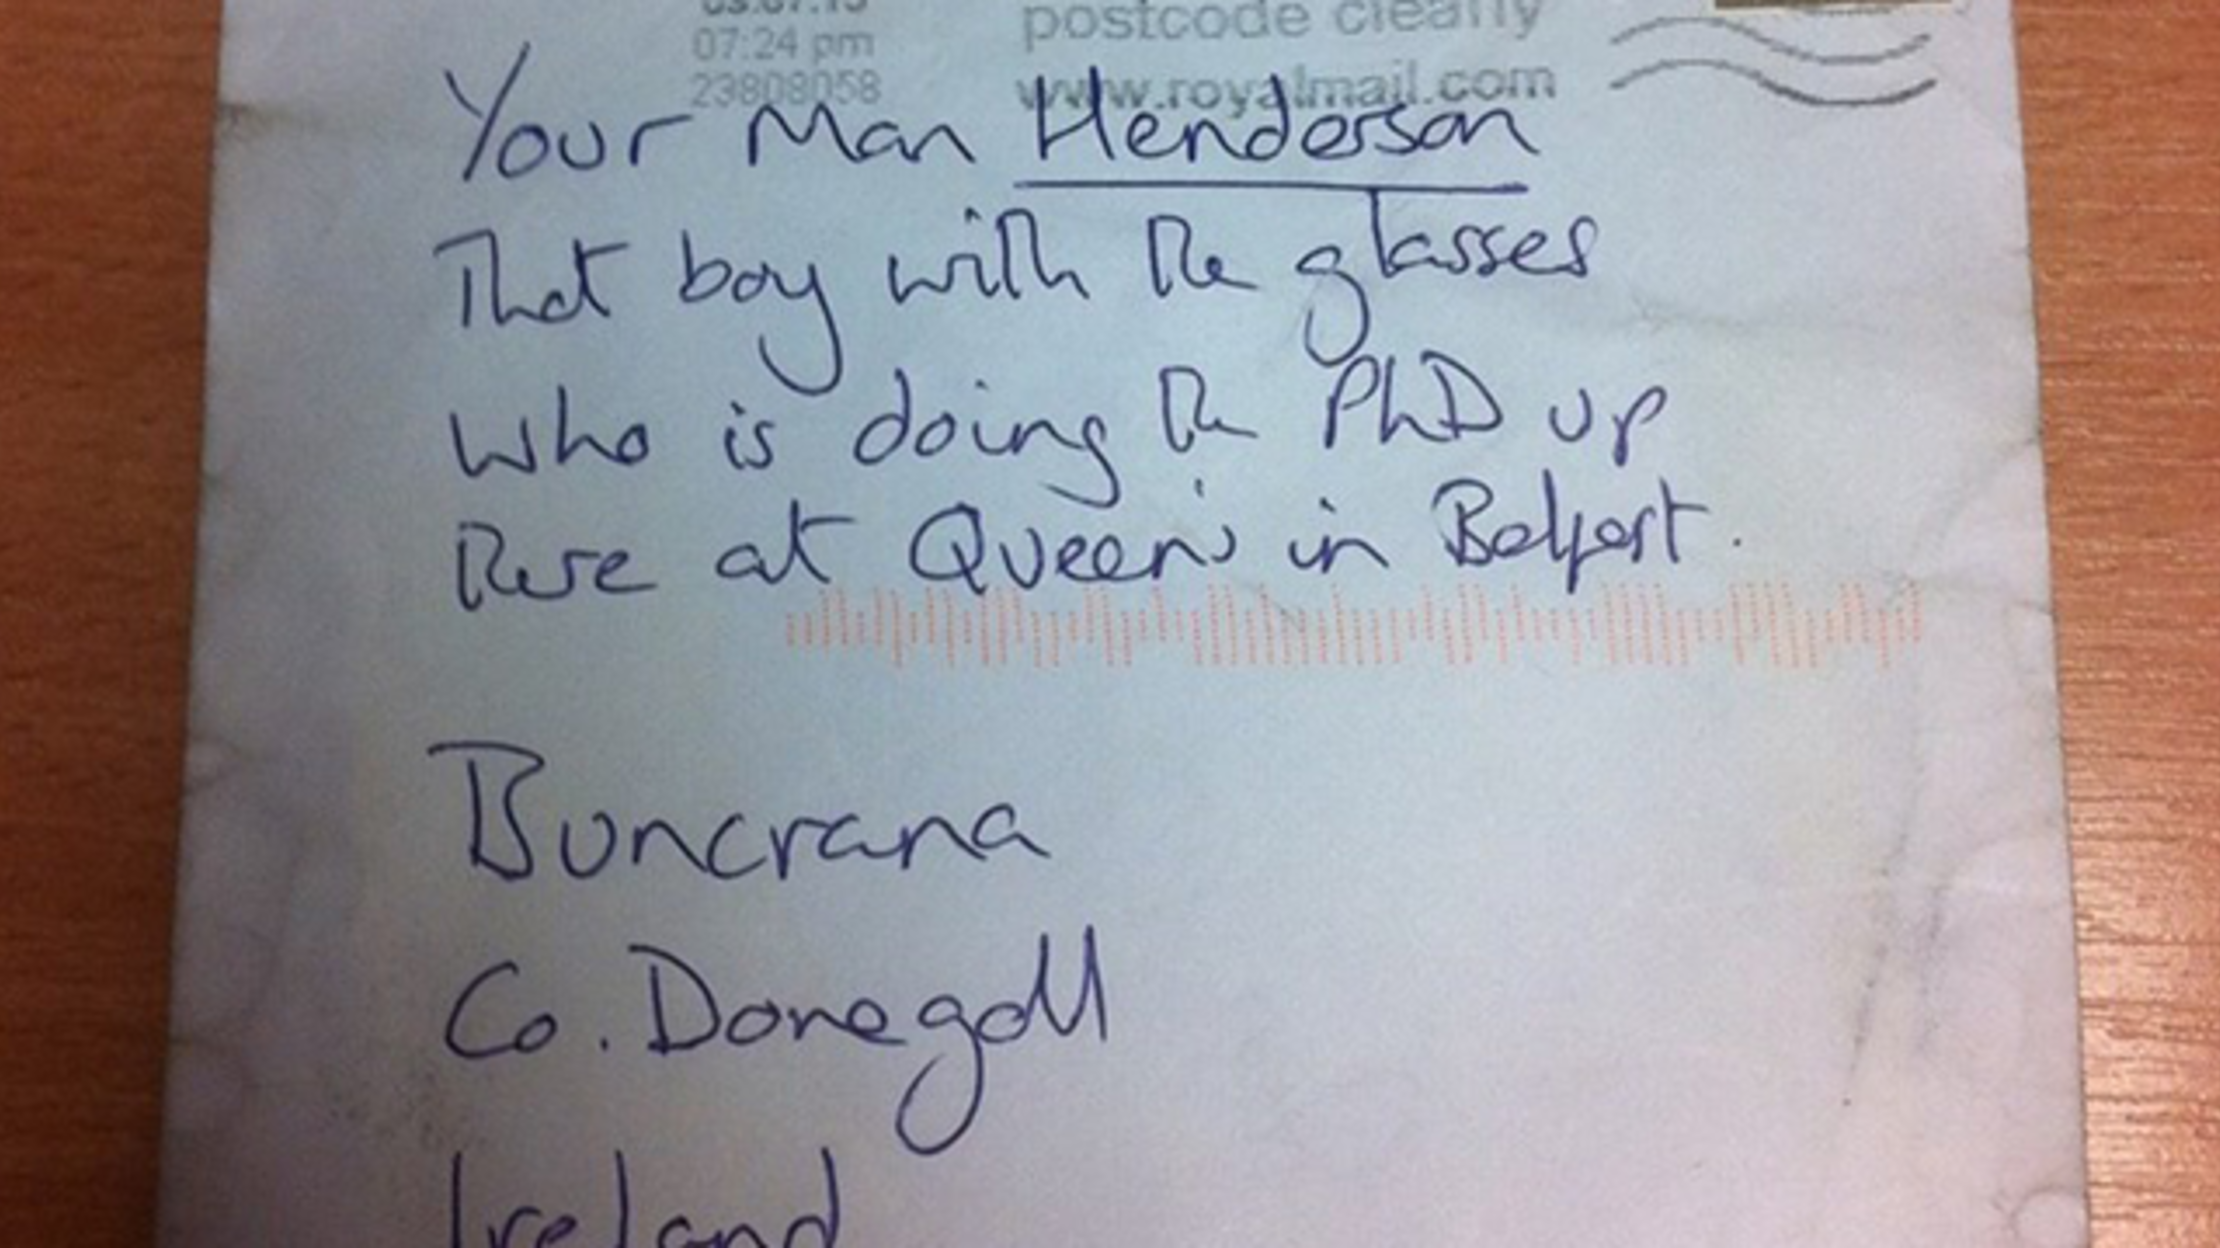 07:24 pm
23808058
postcode clearly
www.royalmail.com
Your Man Henderson
That boy with the glasses
who is doing the PhD up
there at Queen's in Belfast.
Buncrana
Co. Donegall
Ireland